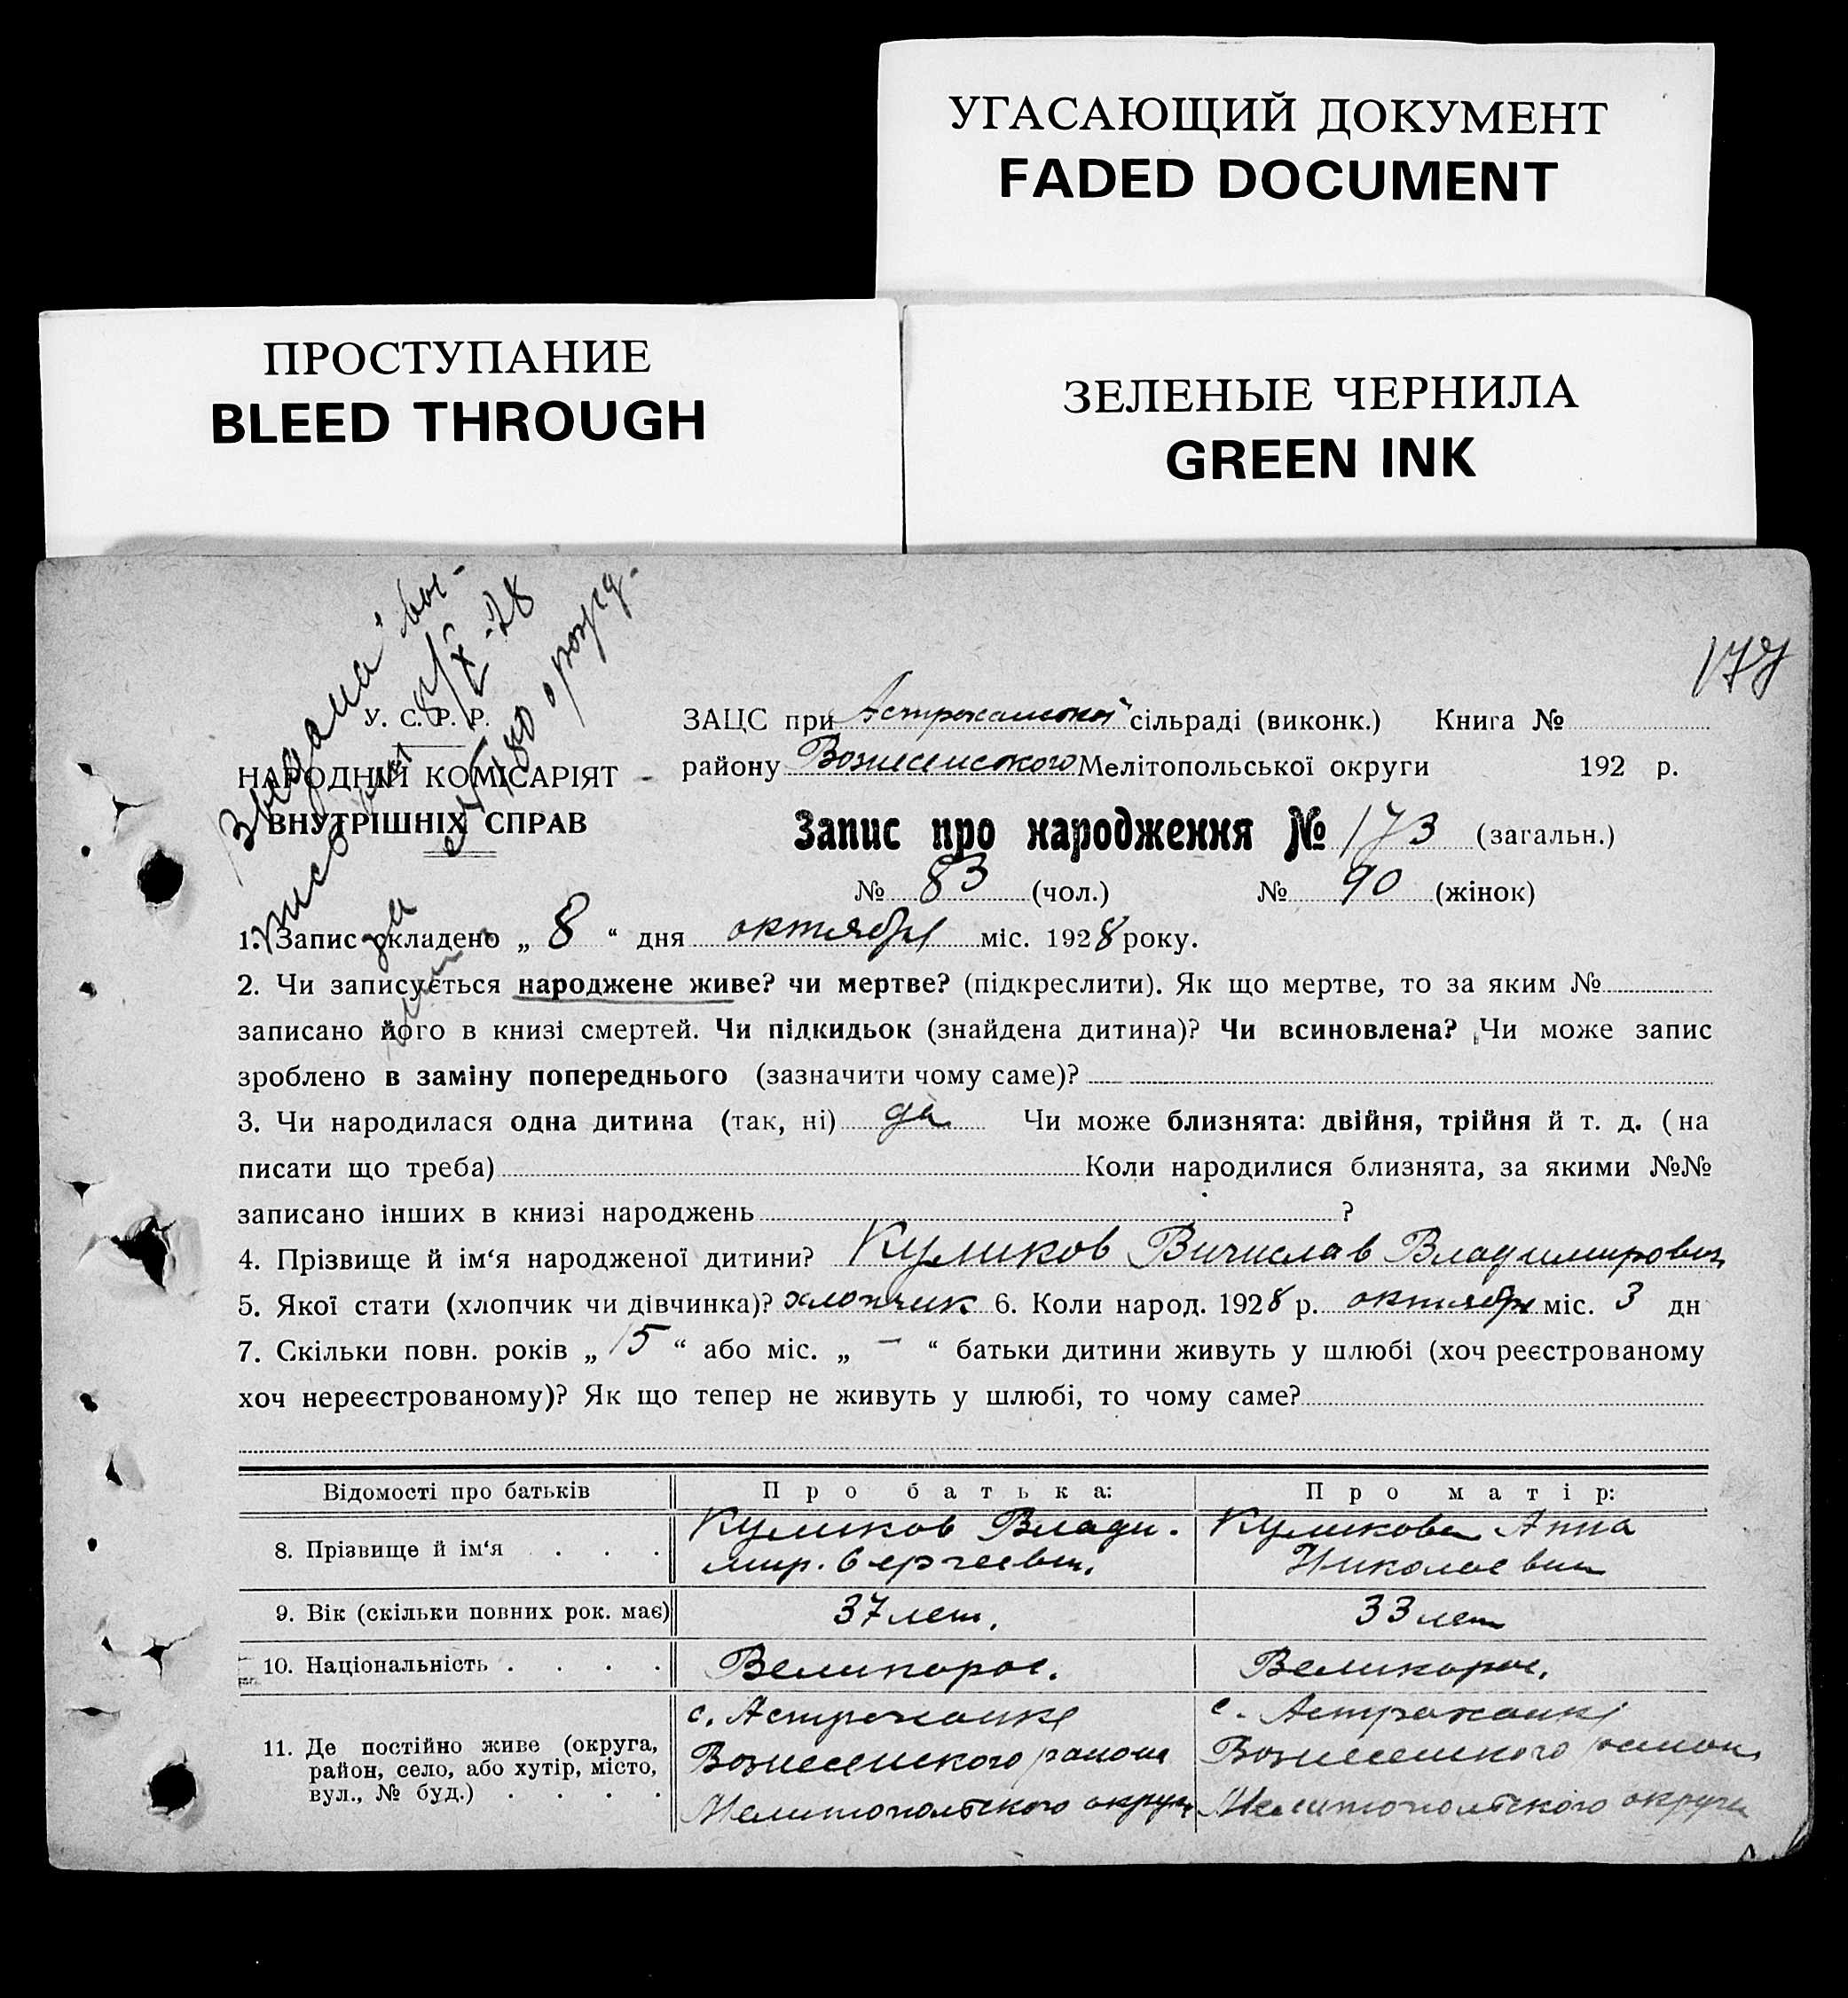 УГАСАЮЩИЙ ДОКУМЕНТ
FADED DOCUMENT
ПРОСТУПАНИЕ
BLEED THROUGH
ЗЕЛЕНЫЕ ЧЕРНИЛА
GREEN INK
8/X-28
177
У. С. Р. Р.
НАРОДНІЙ КОМІСАРІЯТ
ВНУТРІШНІХ СПРАВ
ЗАЦС при Астраханской сільраді (виконк.) Книга №
району Вознесенского Мелітопольської округи 192 р.
Запис про народження № 173 (загальн.)
№ 83 (чол.) № 90 (жінок)
1. Запис складено „ 8 “ дня октября міс. 1928 року.
2. Чи записується народжене живе? чи мертве? (підкреслити). Як що мертве, то за яким №
записано його в книзі смертей. Чи підкидьок (знайдена дитина)? Чи всиновлена? Чи може запис
зроблено в заміну попереднього (зазначити чому саме)?
3. Чи народилася одна дитина (так, ні) да Чи може близнята: двійня, трійня й т. д. (на
писати що треба) Коли народилися близнята, за якими №№
записано інших в книзі народжень ?
4. Прізвище й ім‘я народженої дитини? Куликов Вичислав Владимирович
5. Якої стати (хлопчик чи дівчинка)? хлопчик 6. Коли народ. 1928 р. октября міс. 3 дн
7. Скільки повн. років „ 15 “ або міс. „ – “ батьки дитини живуть у шлюбі (хоч реєстрованому
хоч нереєстрованому)? Як що тепер не живуть у шлюбі, то чому саме?
Відомості про батьків Про батька: Про матір:
8. Прізвище й ім‘я . . . Куликов Влади- Куликова Анна
мир. Сергеевич. Николаевна
9. Вік (скільки повних рок. має) 37 лет. 33 лет
10. Національність . . . . Великорос. Великорос.
11. Де постійно живе (округа, район, село, або хутір, місто, вул., № буд.) . . . .
с. Астраханка с. Астраханка
Вознесенского района Вознесенского района
Мелитопольского округа Мелитопольского округа